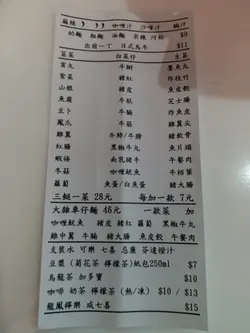 麻辣 咖喱汁 沙嗲汁 腩汁
奶麵 粗麵 油麵 米線 河粉 $9
出前一丁 日式烏冬 $11
菖菜 白菜仔 生菜
貢丸 牛脷 墨魚丸
紫菜 豬紅 炸枝竹
山根 豬皮 魚皮餃
魚腐 牛肚 芝士腸
豆卜 牛腩 炸魚片
鳳爪 牛筋 魚蛋尖
雞翼 牛肺/牛膀 豬軟骨
紅腸 黑椒牛丸 魚片頭
蝦條 南乳豬手 午餐肉
冬菇 咖哩魷魚 牛柏葉
蘿蔔 魚蛋/白魚蛋 豬大腸
三餸一菜 28元 每加一款 7元
大雜車仔麵 46元 一款菜 加
咖哩魷魚 豬皮 豬紅 蘿蔔 黑椒牛丸
雞中翼 牛腩 豬大腸 魚皮餃 午餐肉
支裝水 可樂 七喜 忌廉 芬達橙汁
豆漿 (菊花茶 檸檬茶)紙包250ml $7
烏龍茶 加多寶 $10
咖啡 奶茶 檸檬茶 (熱/凍) $10 / $13
龍鳳檸樂 咸七喜 $15